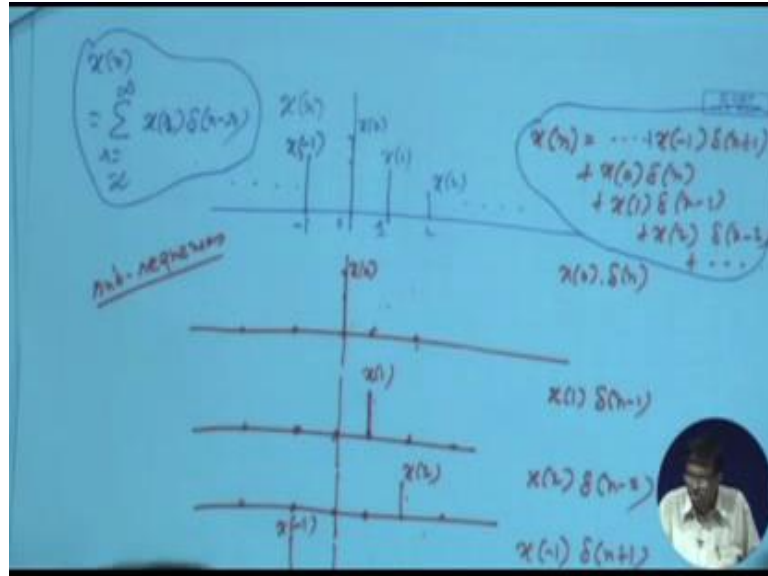 x(n)
= ∑ x(r) δ(n-r)
∞
r=
x(n)
x(-1)
x(0)
x(1)
x(2)
. . . .
. . . . .
-1 0 1 2
x(n) = ---+x(-1) δ(n+1)
+ x(0) δ(n)
+ x(1) δ(n-1)
+ x(2) δ(n-2)
+ ....
sub-sequences
x(0)
x(0).δ(n)
x(1)
x(1) δ(n-1)
x(2)
x(2) δ(n-2)
x(-1)
x(-1) δ(n+1)